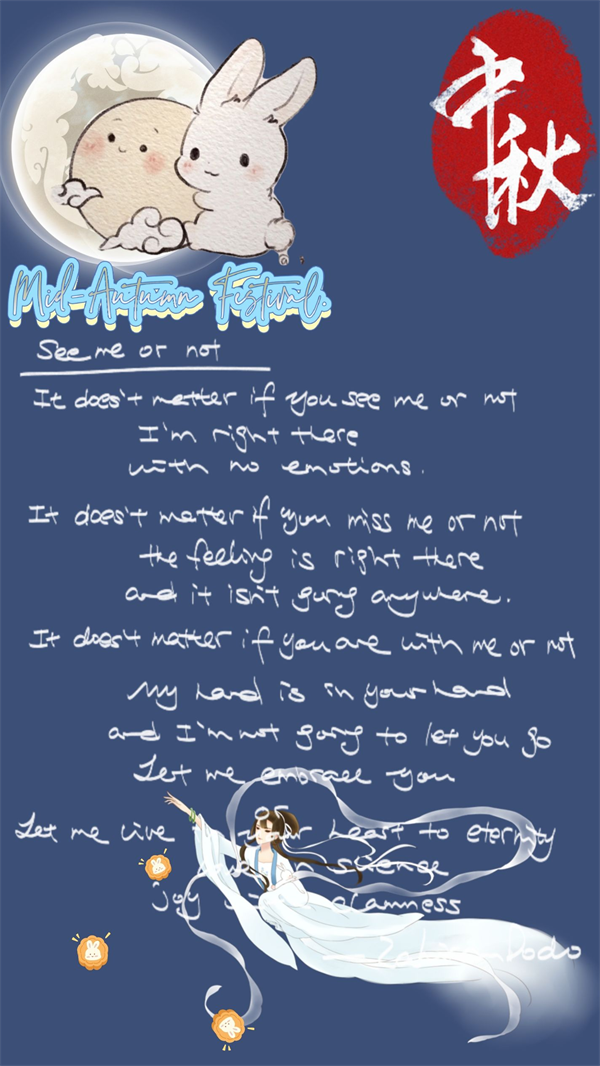 中秋
Mid-Autumn Festival.
See me or not
It does't matter if you see me or not
I'm right there
with no emotions.
It does't matter if you miss me or not
the feeling is right there
and it isn't going anywhere.
It does't matter if you are with me or not
My hand is in your hand
and I'm not going to let you go
Let me embrace you
or
Let me live your heart to eternity
in silence
joy calmness
Dodo